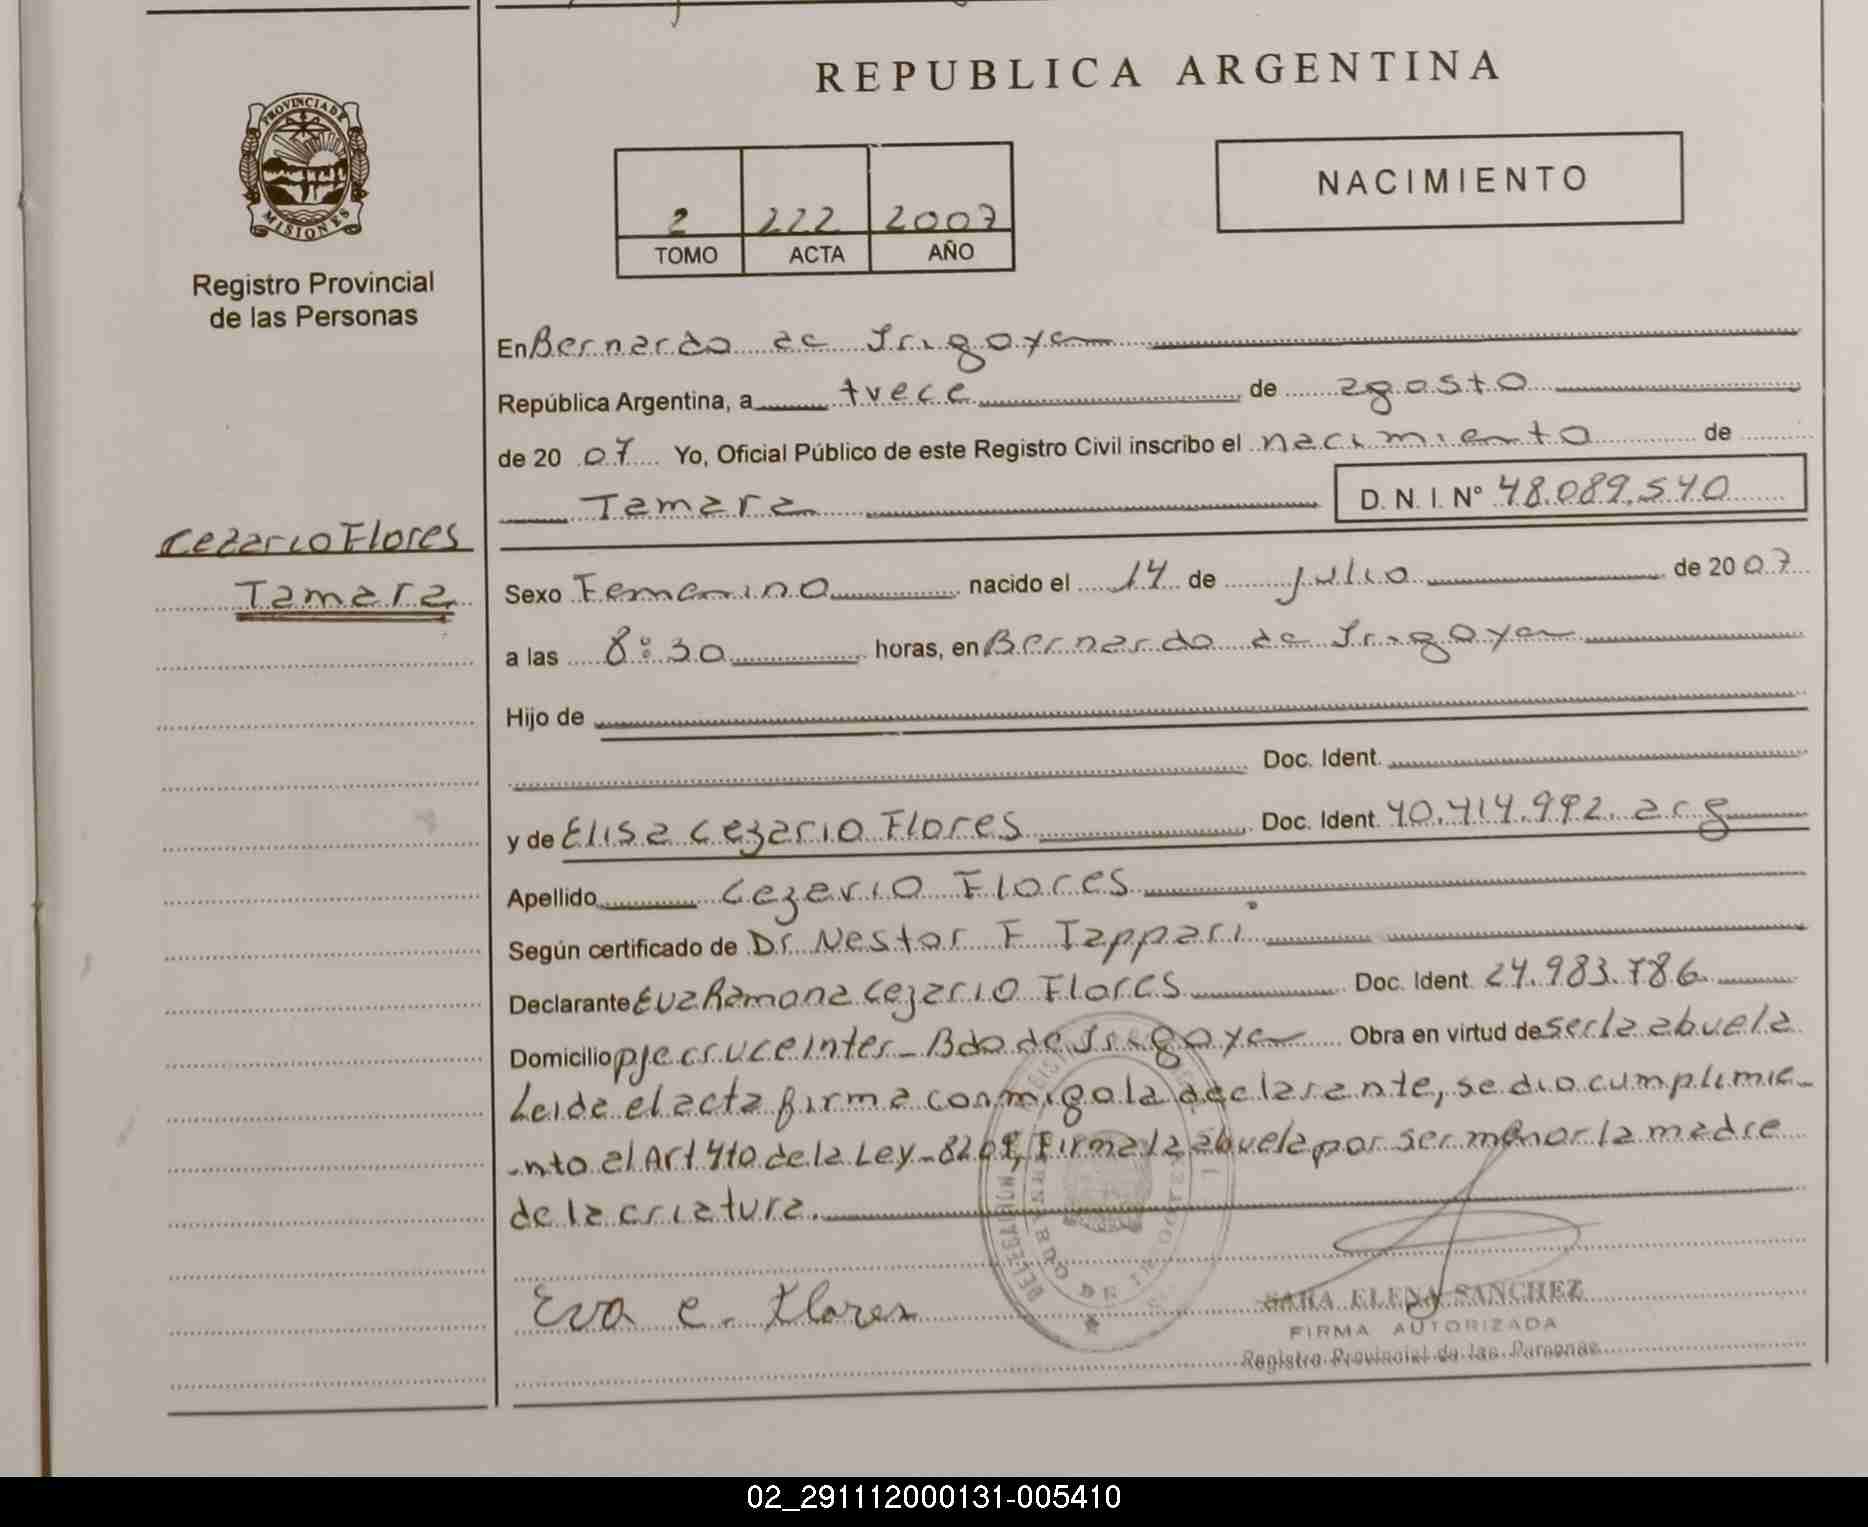 REPUBLICA ARGENTINA
PROVINCIA DE
MISIONES
Registro Provincial
de las Personas
2 222 2007
TOMO ACTA AÑO
NACIMIENTO
En Bernardo de Irigoyen
República Argentina, a trece de agosto
de 20 07 Yo, Oficial Público de este Registro Civil inscribo el nacimiento de
Tamara D. N. I. Nº 48.089.540
Cezario Flores
Tamara
Sexo Femenino nacido el 14 de julio de 20 07
a las 8:30 horas, en Bernardo de Irigoyen
Hijo de
Doc. Ident.
y de Elisa Cezario Flores Doc. Ident. 40.414.992. arg
Apellido Cezario Flores
Según certificado de Dr Nestor F Tappari
Declarante Eva Ramona Cezario Flores Doc. Ident. 24.983.786
Domicilio pje cruce Inter - Bdo de Irigoyen Obra en virtud de ser la abuela
Leida el acta firma conmigo la declarante, se dio cumplimie-
-nto al Art 4to de la Ley - Firma la abuela por ser menor la madre
de la criatura.
Eva C. Flores
SARA ELENA SANCHEZ
FIRMA AUTORIZADA
Registro Provincial de las Personas
02_291112000131-005410